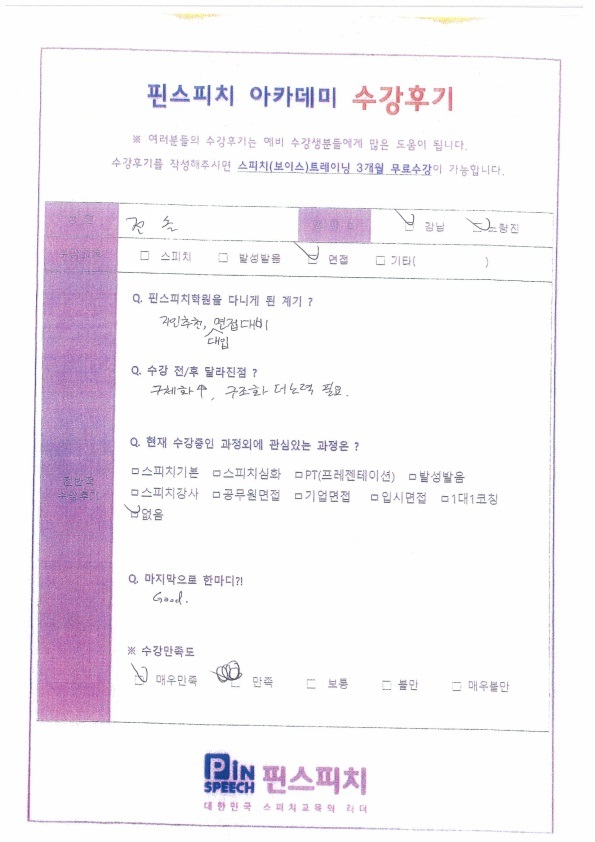 핀스피치 아카데미 수강후기
※ 여러분들의 수강후기는 예비 수강생분들에게 많은 도움이 됩니다.
수강후기를 작성해주시면 스피치(보이스)트레이닝 3개월 무료수강이 가능합니다.
□ 강남 □ 노량진
□ 스피치 □ 발성발음 □ 면접 □ 기타( )
Q. 핀스피치학원을 다니게 된 계기 ?
지인추천, 면접대비
대입
Q. 수강 전/후 달라진점 ?
구체화↑, 구조화 더 노력 필요.
Q. 현재 수강중인 과정외에 관심있는 과정은 ?
□스피치기본 □스피치심화 □PT(프레젠테이션) □발성발음
전반적 □스피치강사 □공무원면접 □기업면접 □입시면접 □1대1코칭
수강후기 □없음
Q. 마지막으로 한마디?!
Good.
※ 수강만족도
□ 매우만족 □ 만족 □ 보통 □ 불만 □ 매우불만
PIN SPEECH 핀스피치
대한민국 스피치교육의 리더